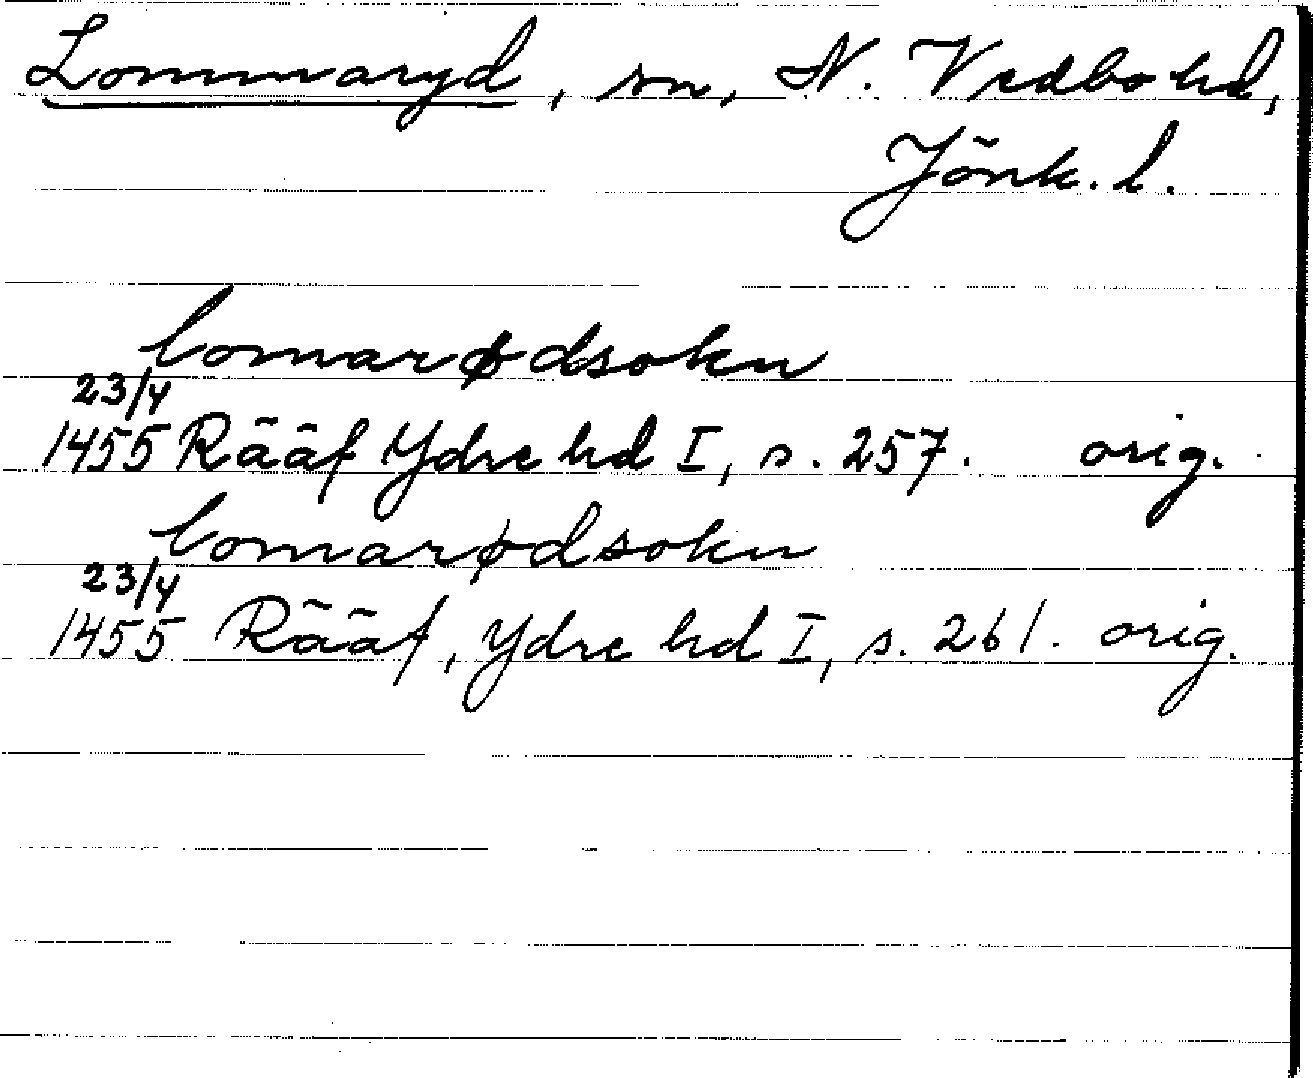 Lommaryd, sn, N. Vedbo hd,
Jönk. l.
lomarødsokn
23/4
1455 Rääf Ydre hd I, s. 257. orig.
lomarødsokn
23/4
1455 Rääf, Ydre hd I, s. 261. orig.